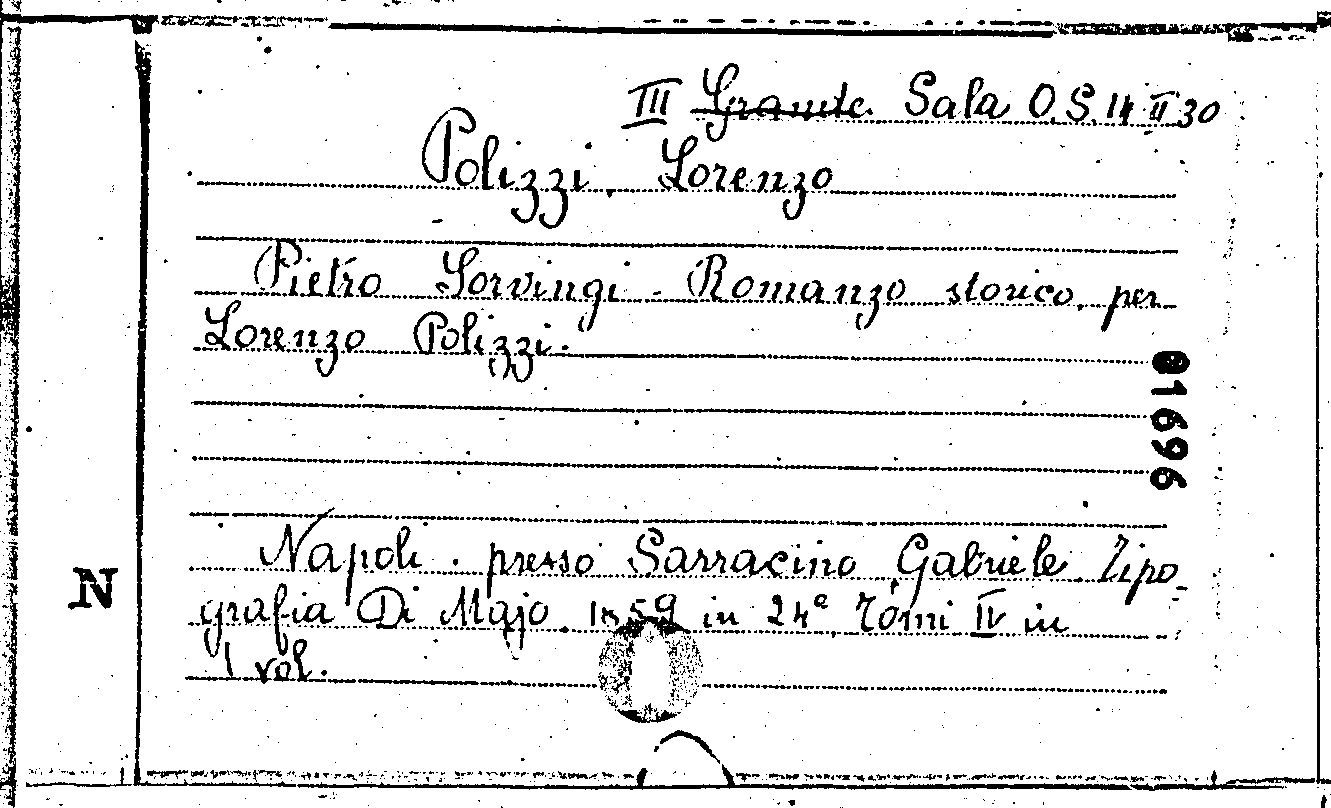 III Grande Sala O.S. 14 II 30
Polizzi, Lorenzo
Pietro Sorvingi - Romanzo storico, per
Lorenzo Polizzi.
01696
Napoli. presso Sarracino Gabriele Tipo-
N
grafia Di Majo. 1859 in 24° Tomi IV in
1 vol.